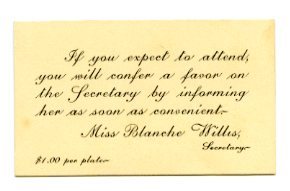 If you expect to attend,
you will confer a favor on
the Secretary by informing
her as soon as convenient.
Miss Blanche Willis,
Secretary.
$1.00 per plate.